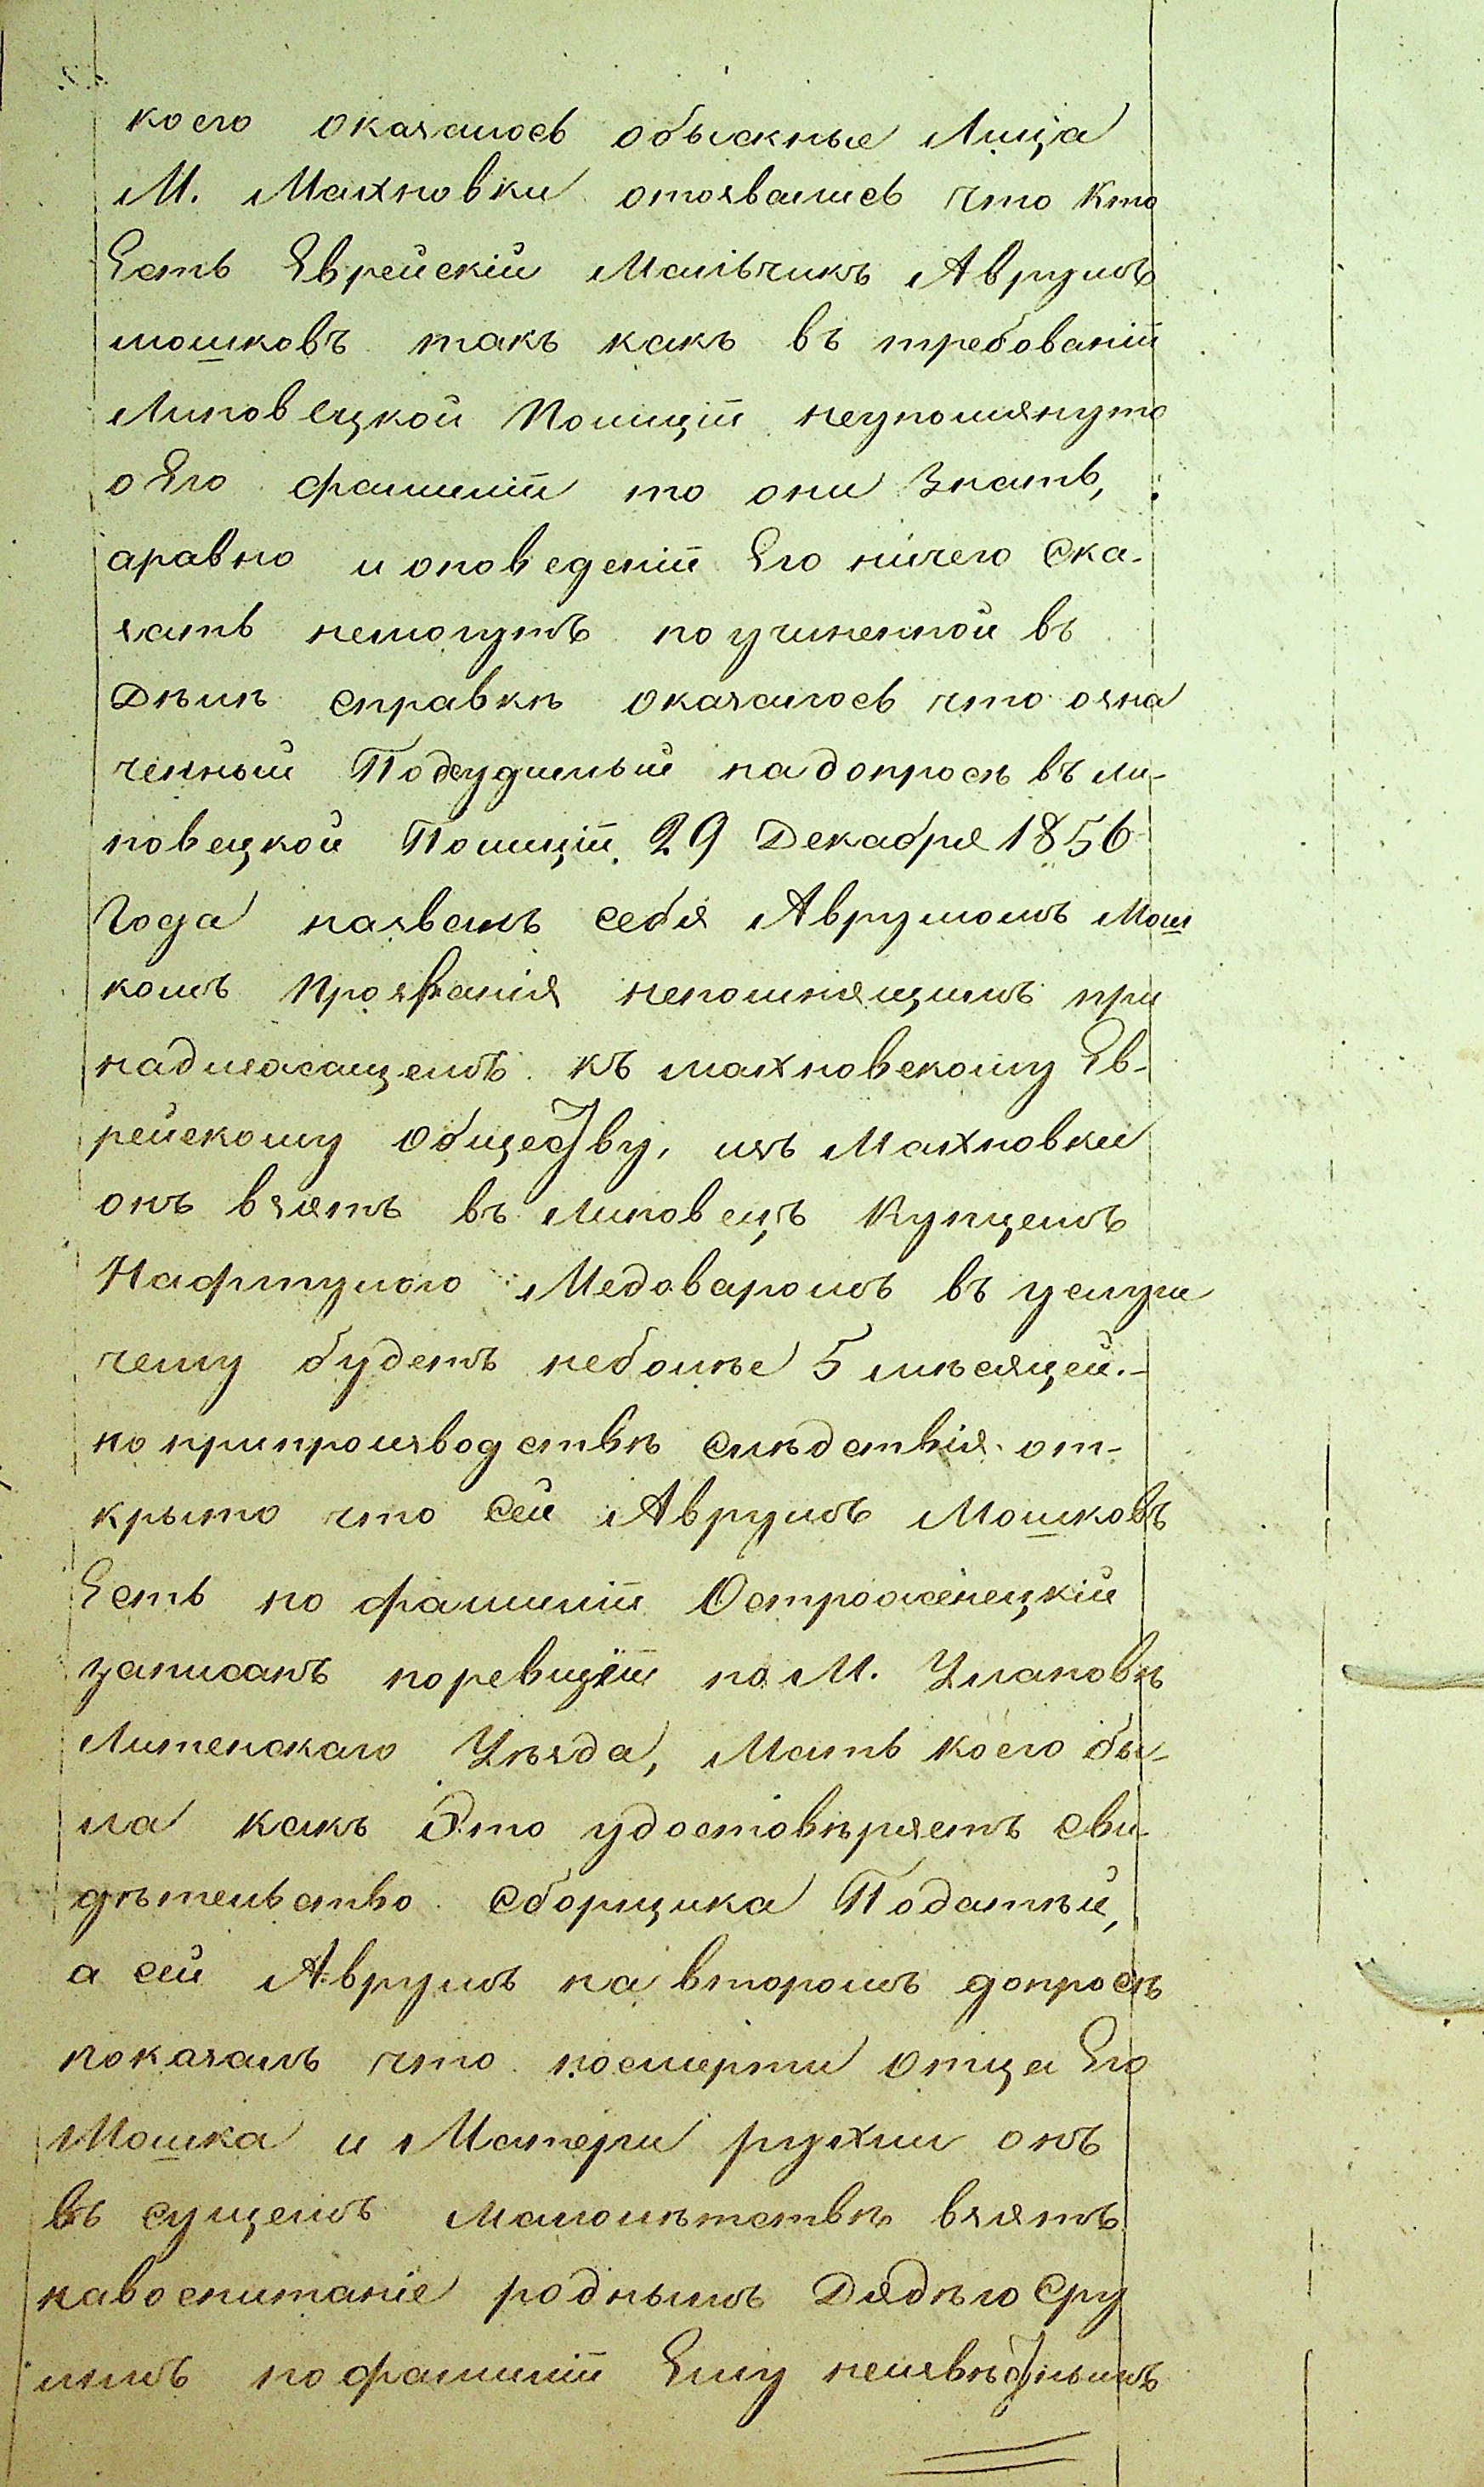 коего оказалось обыскные Лица
М. Махновки отозвались что Кто
Есть Еврейскій Мальчикъ Аврумъ
мошковъ такъ какъ въ требованіи
Липовецкой Полиціи неупомянуто
о Его фамиліи то они Знать,
аравно и оповеденіи Его ничего Ска-
зать немогутъ по учиненной въ
Дѣлѣ справкѣ оказалось что озна
ченный Подсудимый на допросѣ въ ли-
повецкой Полиціи 29 Декабря 1856
Года назвалъ себя Аврумомъ Мош
комъ Прозванія непомнящимъ при
надлежащемъ къ махновскому Ев-
рейскому обществу, изъ Махновки
онъ взятъ въ Липовецъ Купцемъ
Нафтулою Медоваромъ въ услуги
чему будетъ неболѣе 5 мѣсяцей.-
но припроизводствѣ слѣдствія от-
крыто что Сей Аврумъ Мошковъ
Есть по фамиліи Острожнецкій
записанъ поревизіи по М. Улановѣ
Литенскаго Уѣзда, Мать коего бы-
ла какъ Это удостовѣряетъ сви-
дѣтельство Сборщика Податѣй,
а сей Аврумъ на второмъ допросѣ
показалъ что посмерти отца Его
Мошка и Матери рухли онъ
въ сущемъ малолѣтствѣ взятъ
навоспитаніе роднымъ Дядѣю Сру
лемъ по фамиліи Ему неизвѣстнымъ